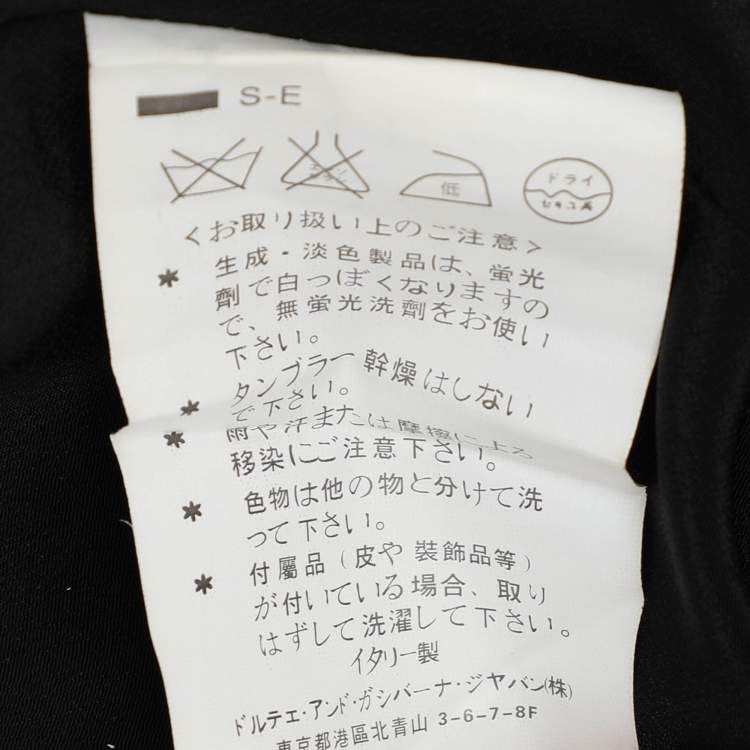 S-E
エンソ
サラシ
低
ドライ
セキユ系
<お取り扱い上のご注意>
* 生成・淡色製品は、蛍光
劑で白っぽくなりますの
で、無蛍光洗劑をお使い
下さい。
* タンブラー幹燥はしない
で下さい。
* 雨や汗または摩擦による
移染にご注意下さい。
* 色物は他の物と分けて洗
って下さい。
* 付屬品(皮や装飾品等)
が付いている場合、取り
はずして洗濯して下さい。
イタリー製
ドルチェ・アンド・ガシバーナ・ジヤバン(株)
東京都港區北青山 3-6-7-8F